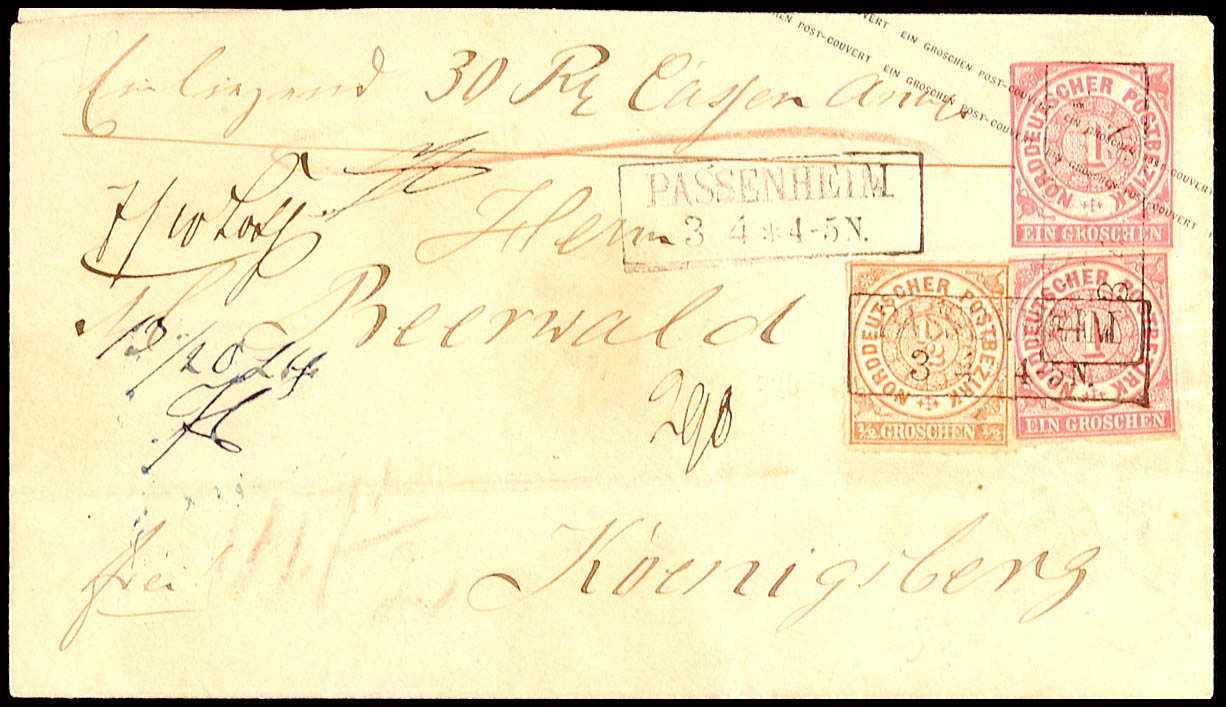 EIN GROSCHEN POST-COUVERT EIN GROSCHEN POST-COUVERT
Einliegend 30 Rt Cassen Anw.
NORDDEUTSCHER POSTBEZIRK
1
EIN GROSCHEN
PASSENHEIM
3 4 * 4-5 N.
7/10 Loth
Herrn
Beerwald
NORDDEUTSCHER POSTBEZIRK
1/2 GROSCHEN 1/2
NORDDEUTSCHER POSTBEZIRK
1
EIN GROSCHEN
HEIM
3 4 4-5 N.
290
frei
Koenigsberg